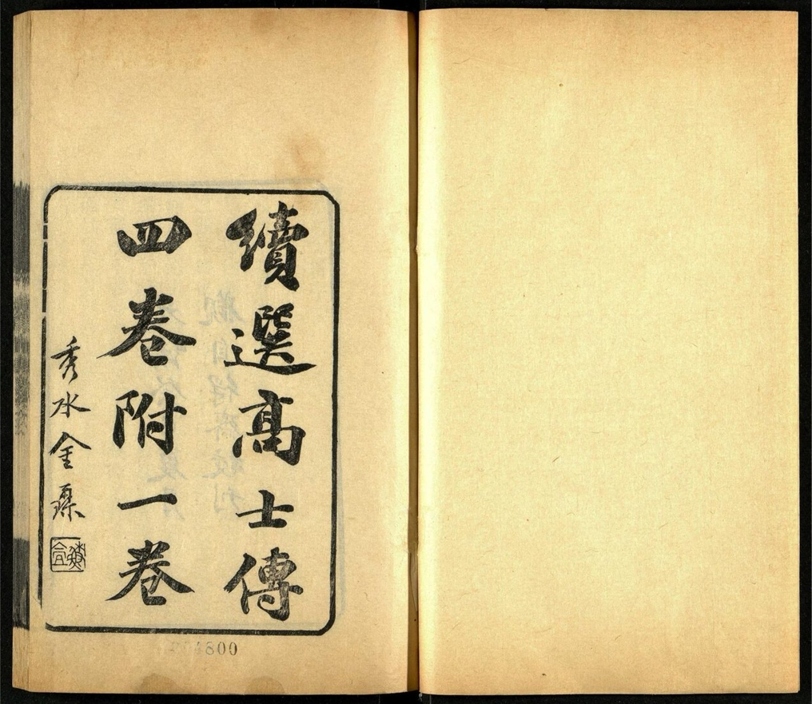 續選高士傳
四卷附一卷
秀水金
800